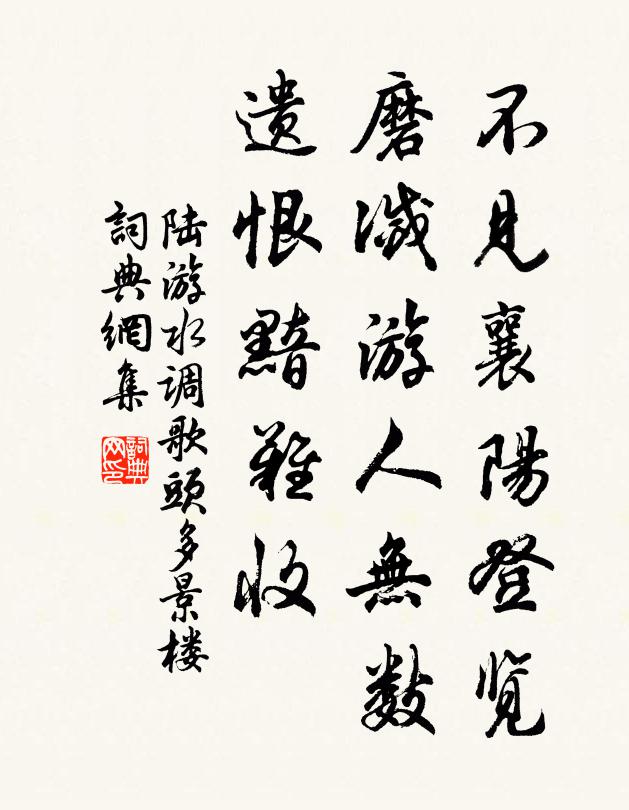 不見襄陽登览
磨滅游人無数
遗恨黯難收
陆游水调歌頭多景楼
詞典網集
詞典網印